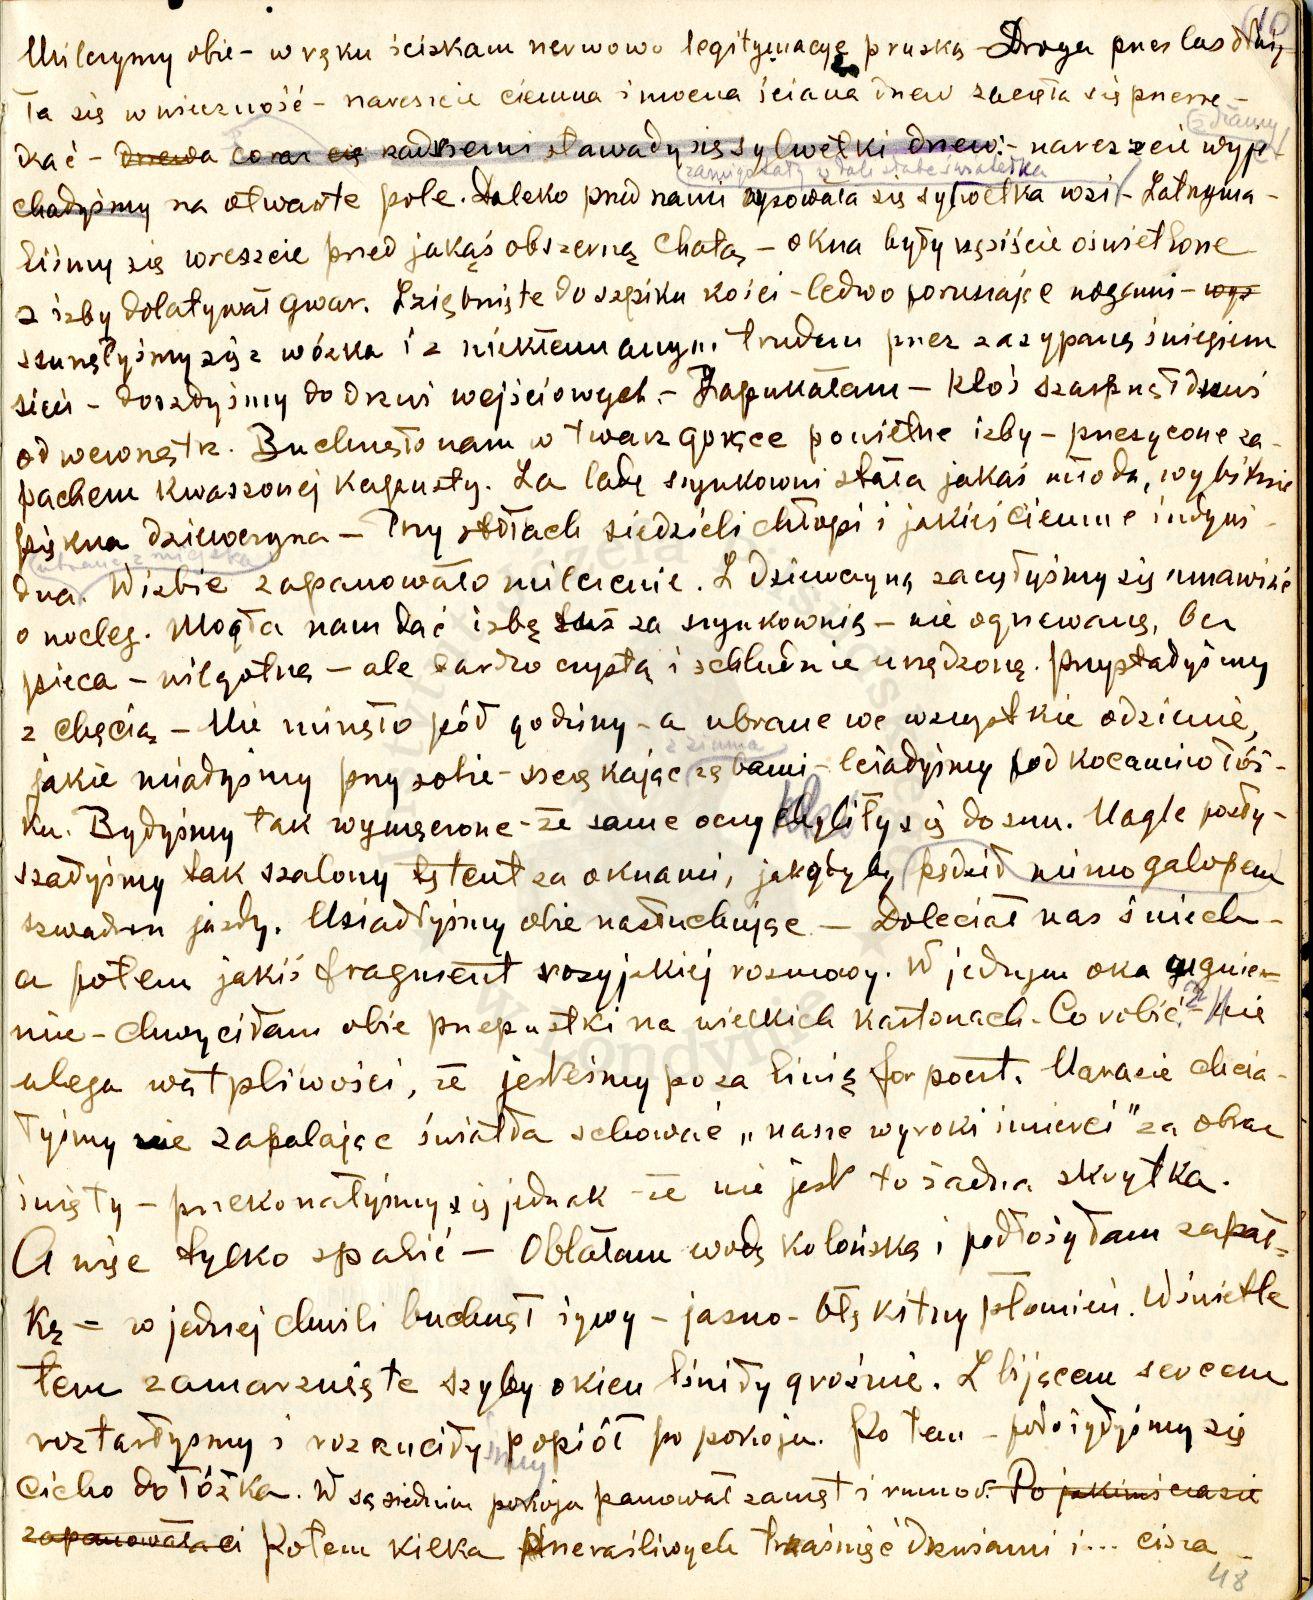 10
Milczymy obie – w ręku ściskam nerwowo legitymację pruską – Droga przez las dłuży
ła się w wieczność – nareszcie ciemna i mocna ściana drzew zaczęła się przerze-
dzać – drzewa coraz się rzadszemi stawały się sylwetki drzew – nareszcie wyje
zamigotały w dali słabe światełka
chałyśmy na otwarte pole. Daleko przed nami rysowała się sylwetka wsi – Zatrzyma-
łyśmy się wreszcie przed jakąś obszerną chatą – okna były rzęsiście oświetlone
z izby dolatywał gwar. Zziębnięte do szpiku kości – ledwo poruszając nogami – wys
zsunęłyśmy się z wózka i z niekłamanym trudem przez zasypaną śniegiem
sień – doszłyśmy do drzwi wejściowych – Zapukałam – ktoś szarpnął drzwi
od wewnątrz. Buchnęło nam w twarz gorące powietrze izby – przesycone za-
pachem kwaszonej kapusty. Za ladą szynkowni stała jakaś młoda, wybitnie
piękna dziewczyna – Przy stołach siedzieli chłopi i jakieś ciemne indywi-
ubrane z miejska
dua. W izbie zapanowało milczenie. Z dziewczyną zaczęłyśmy się umawiać
o nocleg. Mogła nam dać izbę tuż za szynkownią – nie ogrzewaną, bez
pieca – wilgotną – ale bardzo czystą i schludnie urządzoną. Przystałyśmy
z chęcią – Nie minęło pół godziny – a ubrane we wszystkie odzienie,
z zimna
jakie miałyśmy przy sobie – szczękając zębami – leżałyśmy pod kocami w łóż-
ku. Byłyśmy tak wymęczone – że same oczy chyliły się do snu. Nagle posły-
szałyśmy tak szalony tętent za oknami, jakgdyby pędził mimo galopem
szwadron jazdy. Usiadłyśmy obie nasłuchując – Doleciał nas śmiech –
a potem jakiś fragment rosyjskiej rozmowy. W jednym oka mgnie-
niu – chwyciłam obie przepustki na wielkich kartonach – Co robić? – nie
ulega wątpliwości, że jesteśmy poza linią forpoczt. Narazie chcia-
łyśmy nie zapalając światła schować „nasze wyroki śmierci" za obraz
święty – przekonałyśmy się jednak – że nie jest to żadna skrytka.
A więc tylko spalić – Oblałam wodą kolońską i podłożyłam zapał-
kę – w jednej chwili buchnął żywy – jasno-błękitny płomień. W świetle
tem zamarznięte szyby okien lśniły groźnie. Z bijącem sercem
roztarłyśmy i rozrzuciłyśmy popiół po pokoju. Po tem – położyłyśmy się
cicho do łóżka. W sąsiednim pokoju panował zamęt i rumor. Po jakimś czasie
zapanowała ci Potem kilka przeraźliwych trzaśnięć drzwiami i... cisza –
48
Instytut Józefa Piłsudskiego
w Londynie